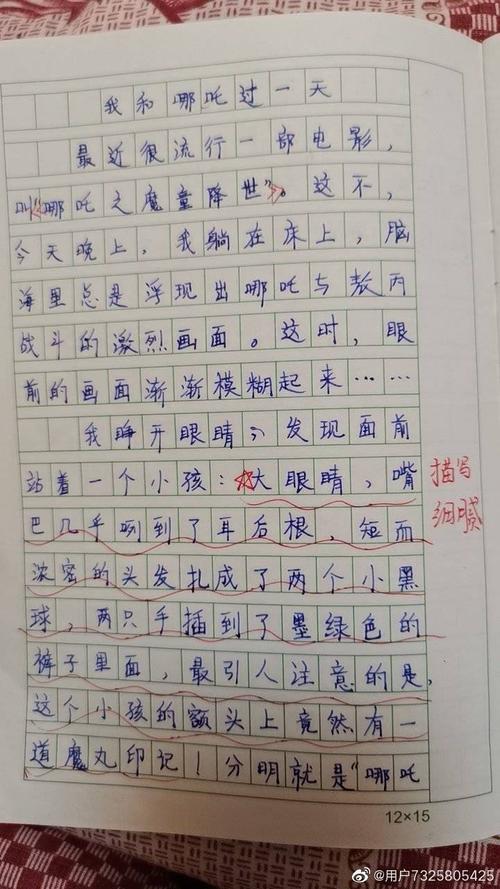 我和哪吒过一天
最近很流行一部电影，
叫“哪吒之魔童降世”。这不，
今天晚上，我躺在床上，脑
海里总是浮现出哪吒与敖丙
战斗的激烈画面。这时，眼
前的画面渐渐模糊起来……
我睁开眼睛，发现面前
站着一个小孩：大眼睛，嘴
巴几乎咧到了耳后根，短而
浓密的头发扎成了两个小黑
球，两只手插到了墨绿色的
裤子里面，最引人注意的是，
这个小孩的额头上竟然有一
道魔丸印记！分明就是“哪吒
描写
细腻
12×15
@用户7325805425